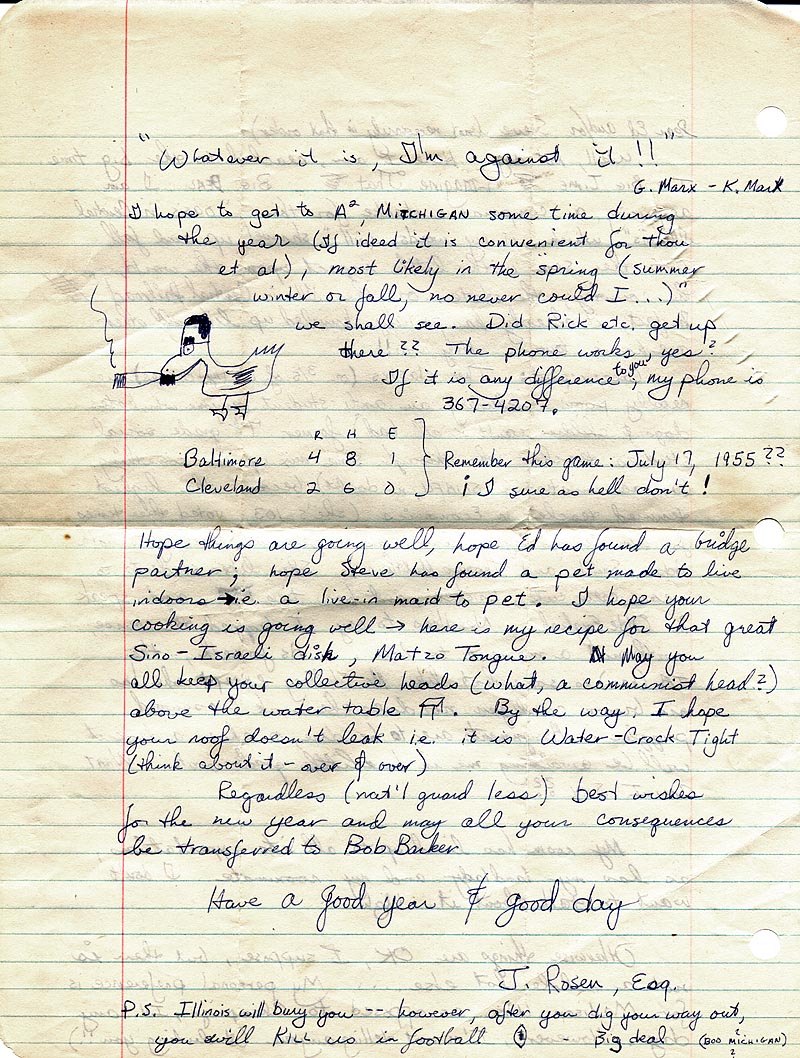 "Whatever it is, I'm against it!!"
G. Marx - K. Marx
I hope to get to A², MITCHIGAN some time during
the year (If ideed it is convenient for thou
et al), most likely in the spring (summer
winter or fall, no never could I...)"
we shall see. Did Rick etc. get up
there?? The phone works, yes?
If it is any difference to you, my phone is
367-4207.
R H E
Baltimore 4 8 1
Cleveland 2 6 0
Remember this game: July 17, 1955??
¡ I sure as hell don't!
Hope things are going well, hope Ed has found a bridge
partner; hope Steve has found a pet made to live
indoors → i.e. a live-in maid to pet. I hope your
cooking is going well → here is my recipe for that great
Sino-Israeli dish, Matzo Tongue. May you
all keep your collective heads (what, a communist head?)
above the water table. By the way, I hope
your roof doesn't leak i.e. it is Water-Crock Tight
(think about it - over & over)
Regardless (nat'l guard less) best wishes
for the new year and may all your consequences
be transferred to Bob Barker
Have a good year & good day
J. Rosen, Esq.
P.S. Illinois will bury you -- however, after you dig your way out,
you will KILL us in football - Big deal (BOO MICHIGAN)